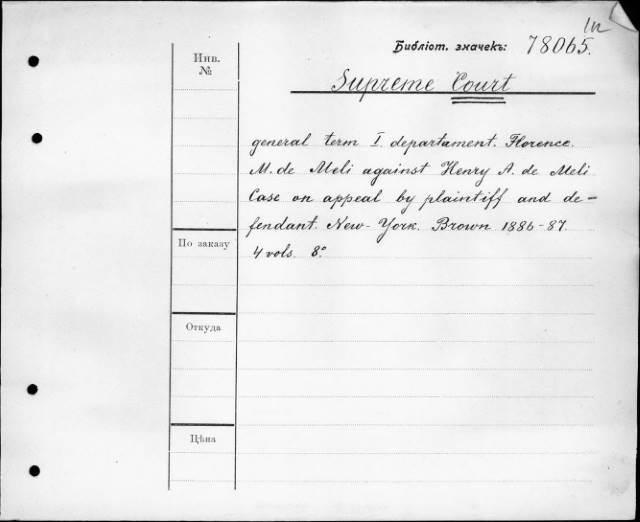 In
Библіот. значекъ: 78065.
Инв.
№
Supreme Court
general term I. departament. Florence
M. de Meli against Henry A. de Meli
Case on appeal by plaintiff and de-
fendant. New-York. Brown 1886-87.
4 vols. 8°.
По заказу
Откуда
Цѣна